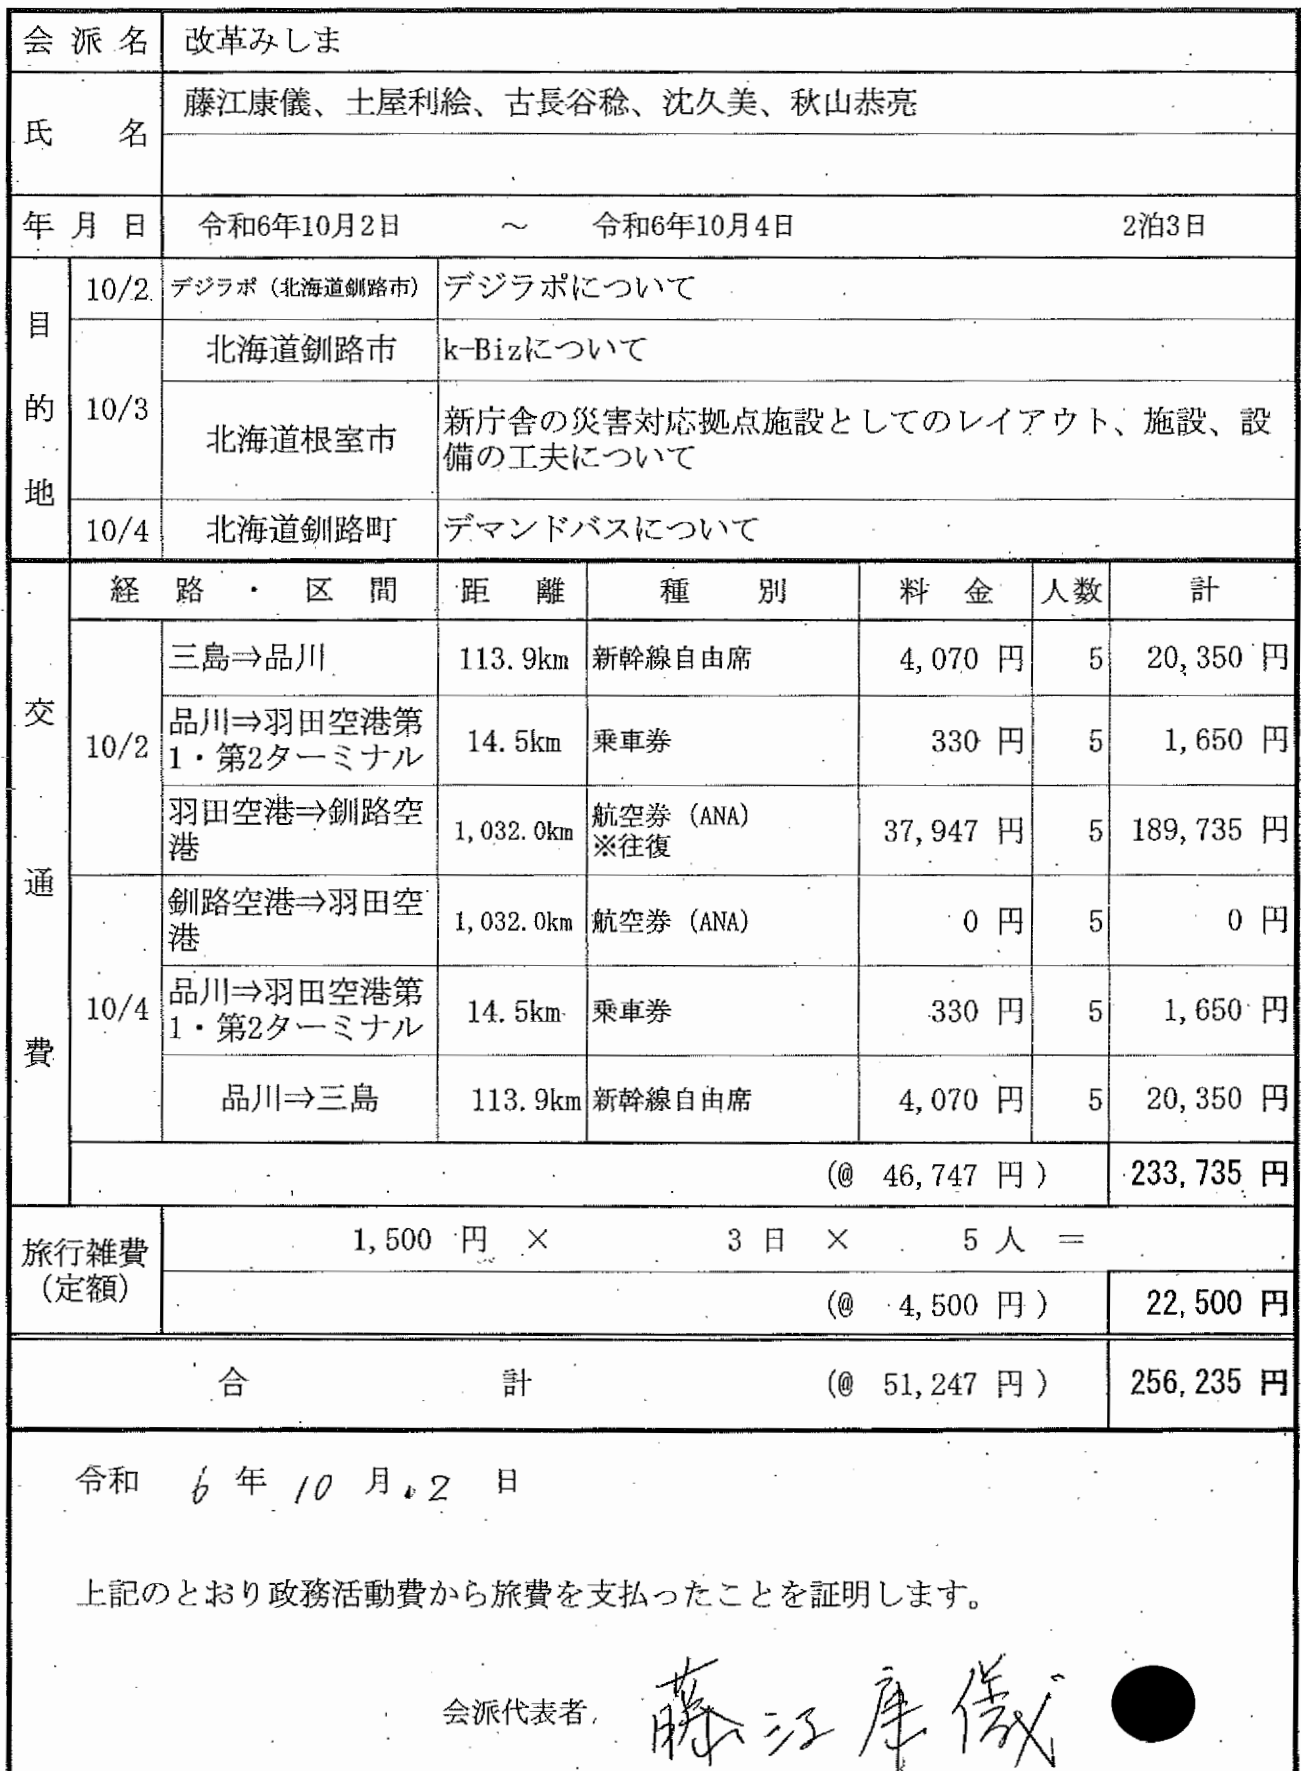 会派名 改革みしま
氏名 藤江康儀、土屋利絵、古長谷稔、沈久美、秋山恭亮
年月日 令和6年10月2日 ～ 令和6年10月4日 2泊3日
目的地
10/2 デジラボ（北海道釧路市） デジラボについて
10/3 北海道釧路市 k-Bizについて
北海道根室市 新庁舎の災害対応拠点施設としてのレイアウト、施設、設
備の工夫について
10/4 北海道釧路町 デマンドバスについて
交通費
経路・区間 距離 種別 料金 人数 計
10/2 三島⇒品川 113.9km 新幹線自由席 4,070 円 5 20,350 円
品川⇒羽田空港第
1・第2ターミナル 14.5km 乗車券 330 円 5 1,650 円
羽田空港⇒釧路空
港 1,032.0km 航空券（ANA）
※往復 37,947 円 5 189,735 円
10/4 釧路空港⇒羽田空
港 1,032.0km 航空券（ANA） 0 円 5 0 円
品川⇒羽田空港第
1・第2ターミナル 14.5km 乗車券 330 円 5 1,650 円
品川⇒三島 113.9km 新幹線自由席 4,070 円 5 20,350 円
(@ 46,747 円) 233,735 円
旅行雑費
（定額）
1,500 円 × 3 日 × 5 人 ＝
(@ 4,500 円) 22,500 円
合計 (@ 51,247 円) 256,235 円
令和 6 年 10 月 2 日
上記のとおり政務活動費から旅費を支払ったことを証明します。
会派代表者 藤江康儀